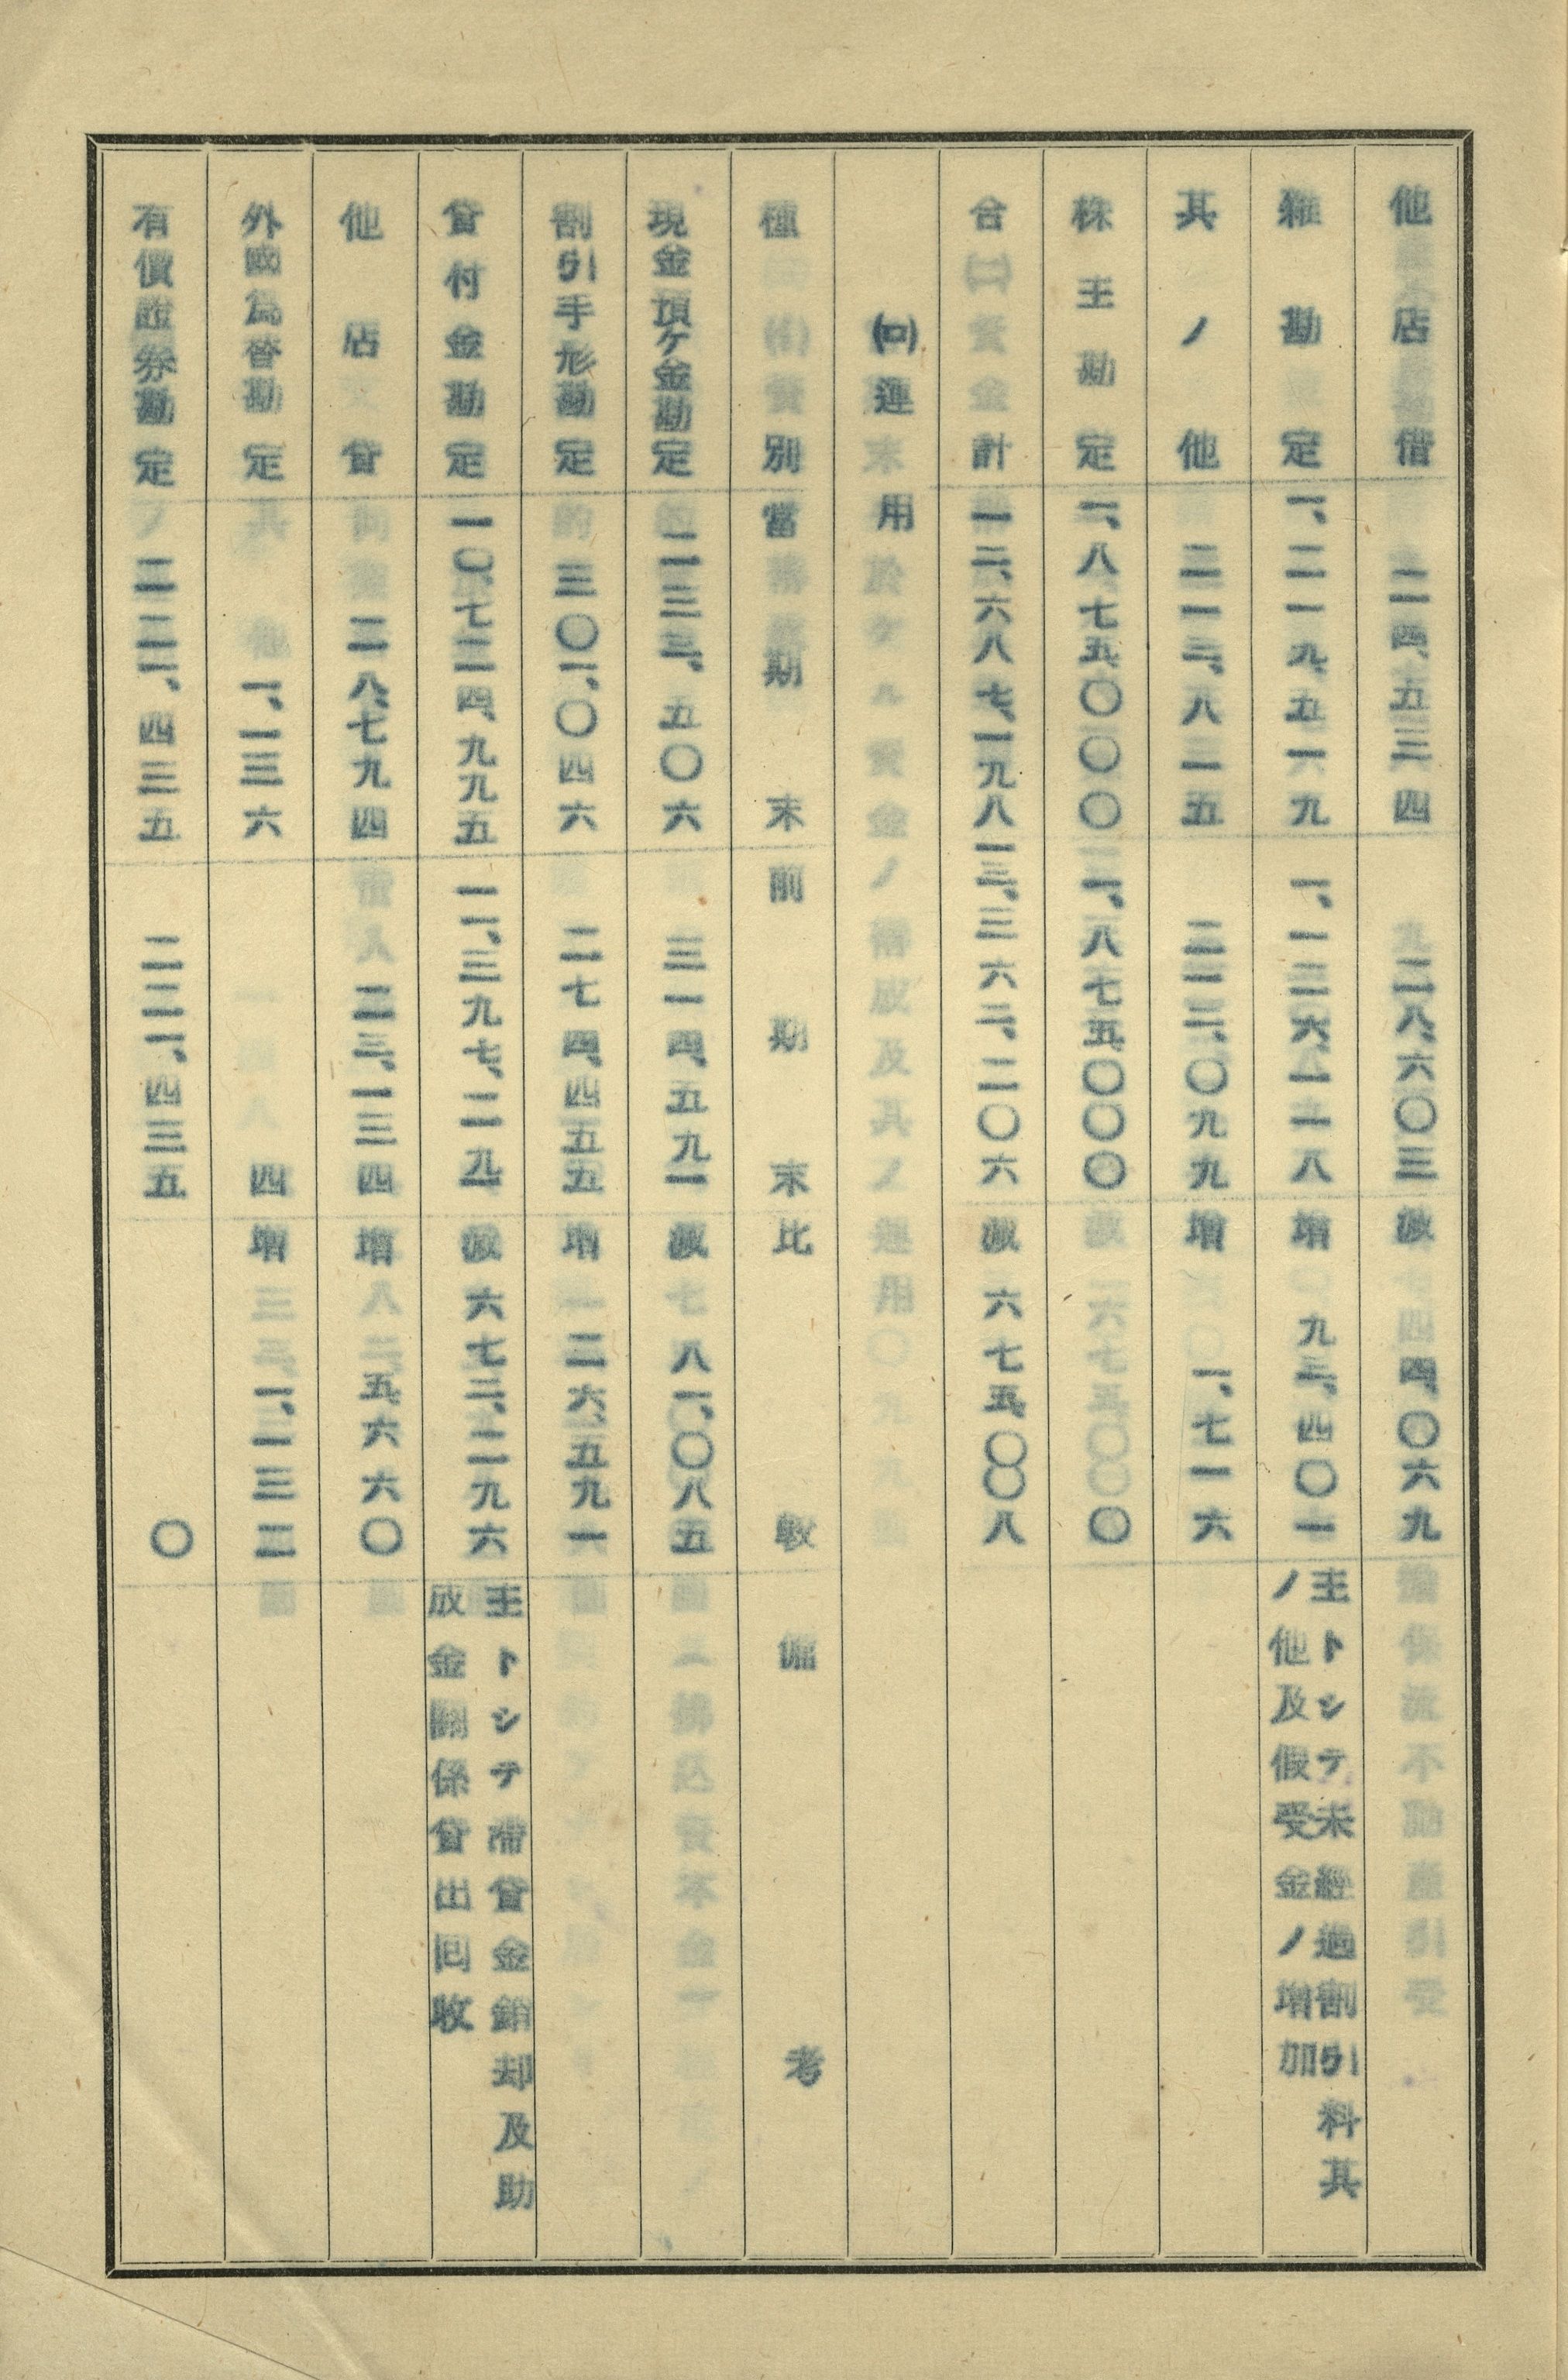 他店借 二四、五三四 二八、六〇三 減 四、〇六九
雜勘定 一、二一九、五一九 一、一二六、一一八 増 九三、四〇一 主トシテ未經過割引料其
ノ他及假受金ノ増加
其ノ他 二一三、八一五 二一二、〇九九 増 一、七一六
株主勘定 一、八七五、〇〇〇 一、八七五、〇〇〇 〇
合計 一二、六八七、一九八 一三、三六二、二〇六 減 六七五、〇〇八
(ロ)運用
種別 當期末 前期末 比較 備考
現金預ケ金勘定 二三三、五〇六 三一四、五九一 減 八一、〇八五
割引手形勘定 三〇一、〇四六 二七四、四五五 増 二六、五九一
貸付金勘定 一〇、七二四、九九五 一一、三九七、二九一 減 六七二、二九六 主トシテ滯貸金銷却及助
成金關係貸出回收
他店貸 二八、七九四 二三、一三四 増 五、六六〇
外國為替勘定 一、一三六 四 増 一、一三二
有價證券勘定 二二一、四三五 二二一、四三五 〇